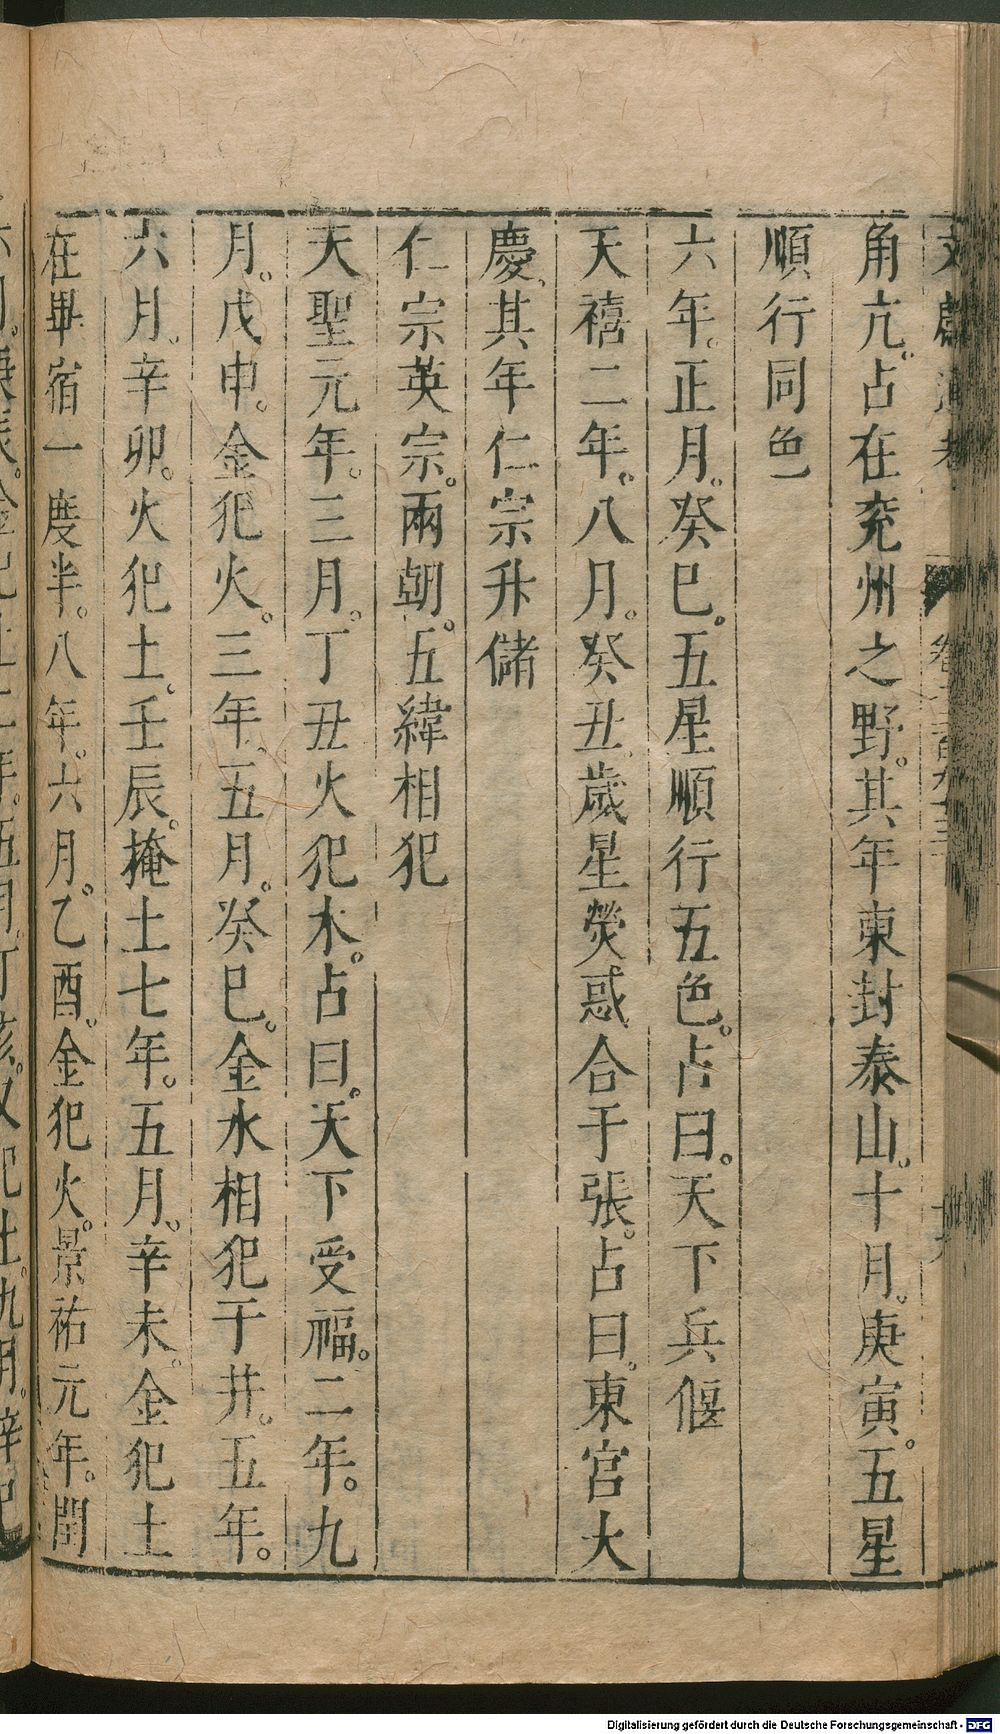 文獻通考 卷二百九十三
角亢。占在兖州之野。其年東封泰山。十月。庚寅。五星
順行同色
六年。正月。癸巳。五星順行五色。占曰。天下兵偃
天禧二年。八月。癸丑。歲星熒惑合于張。占曰。東宮大
慶。其年仁宗升儲
仁宗英宗。兩朝。五緯相犯
天聖元年。三月。丁丑火犯木。占曰。天下受福。二年。九
月。戊申。金犯火。三年。五月。癸巳。金水相犯于井。五年。
六月。辛卯。火犯土。壬辰。掩土七年。五月。辛未。金犯土
在畢宿一度半。八年。六月。乙酉。金犯火。景祐元年。閏
Digitalisierung gefördert durch die Deutsche Forschungsgemeinschaft - DFG